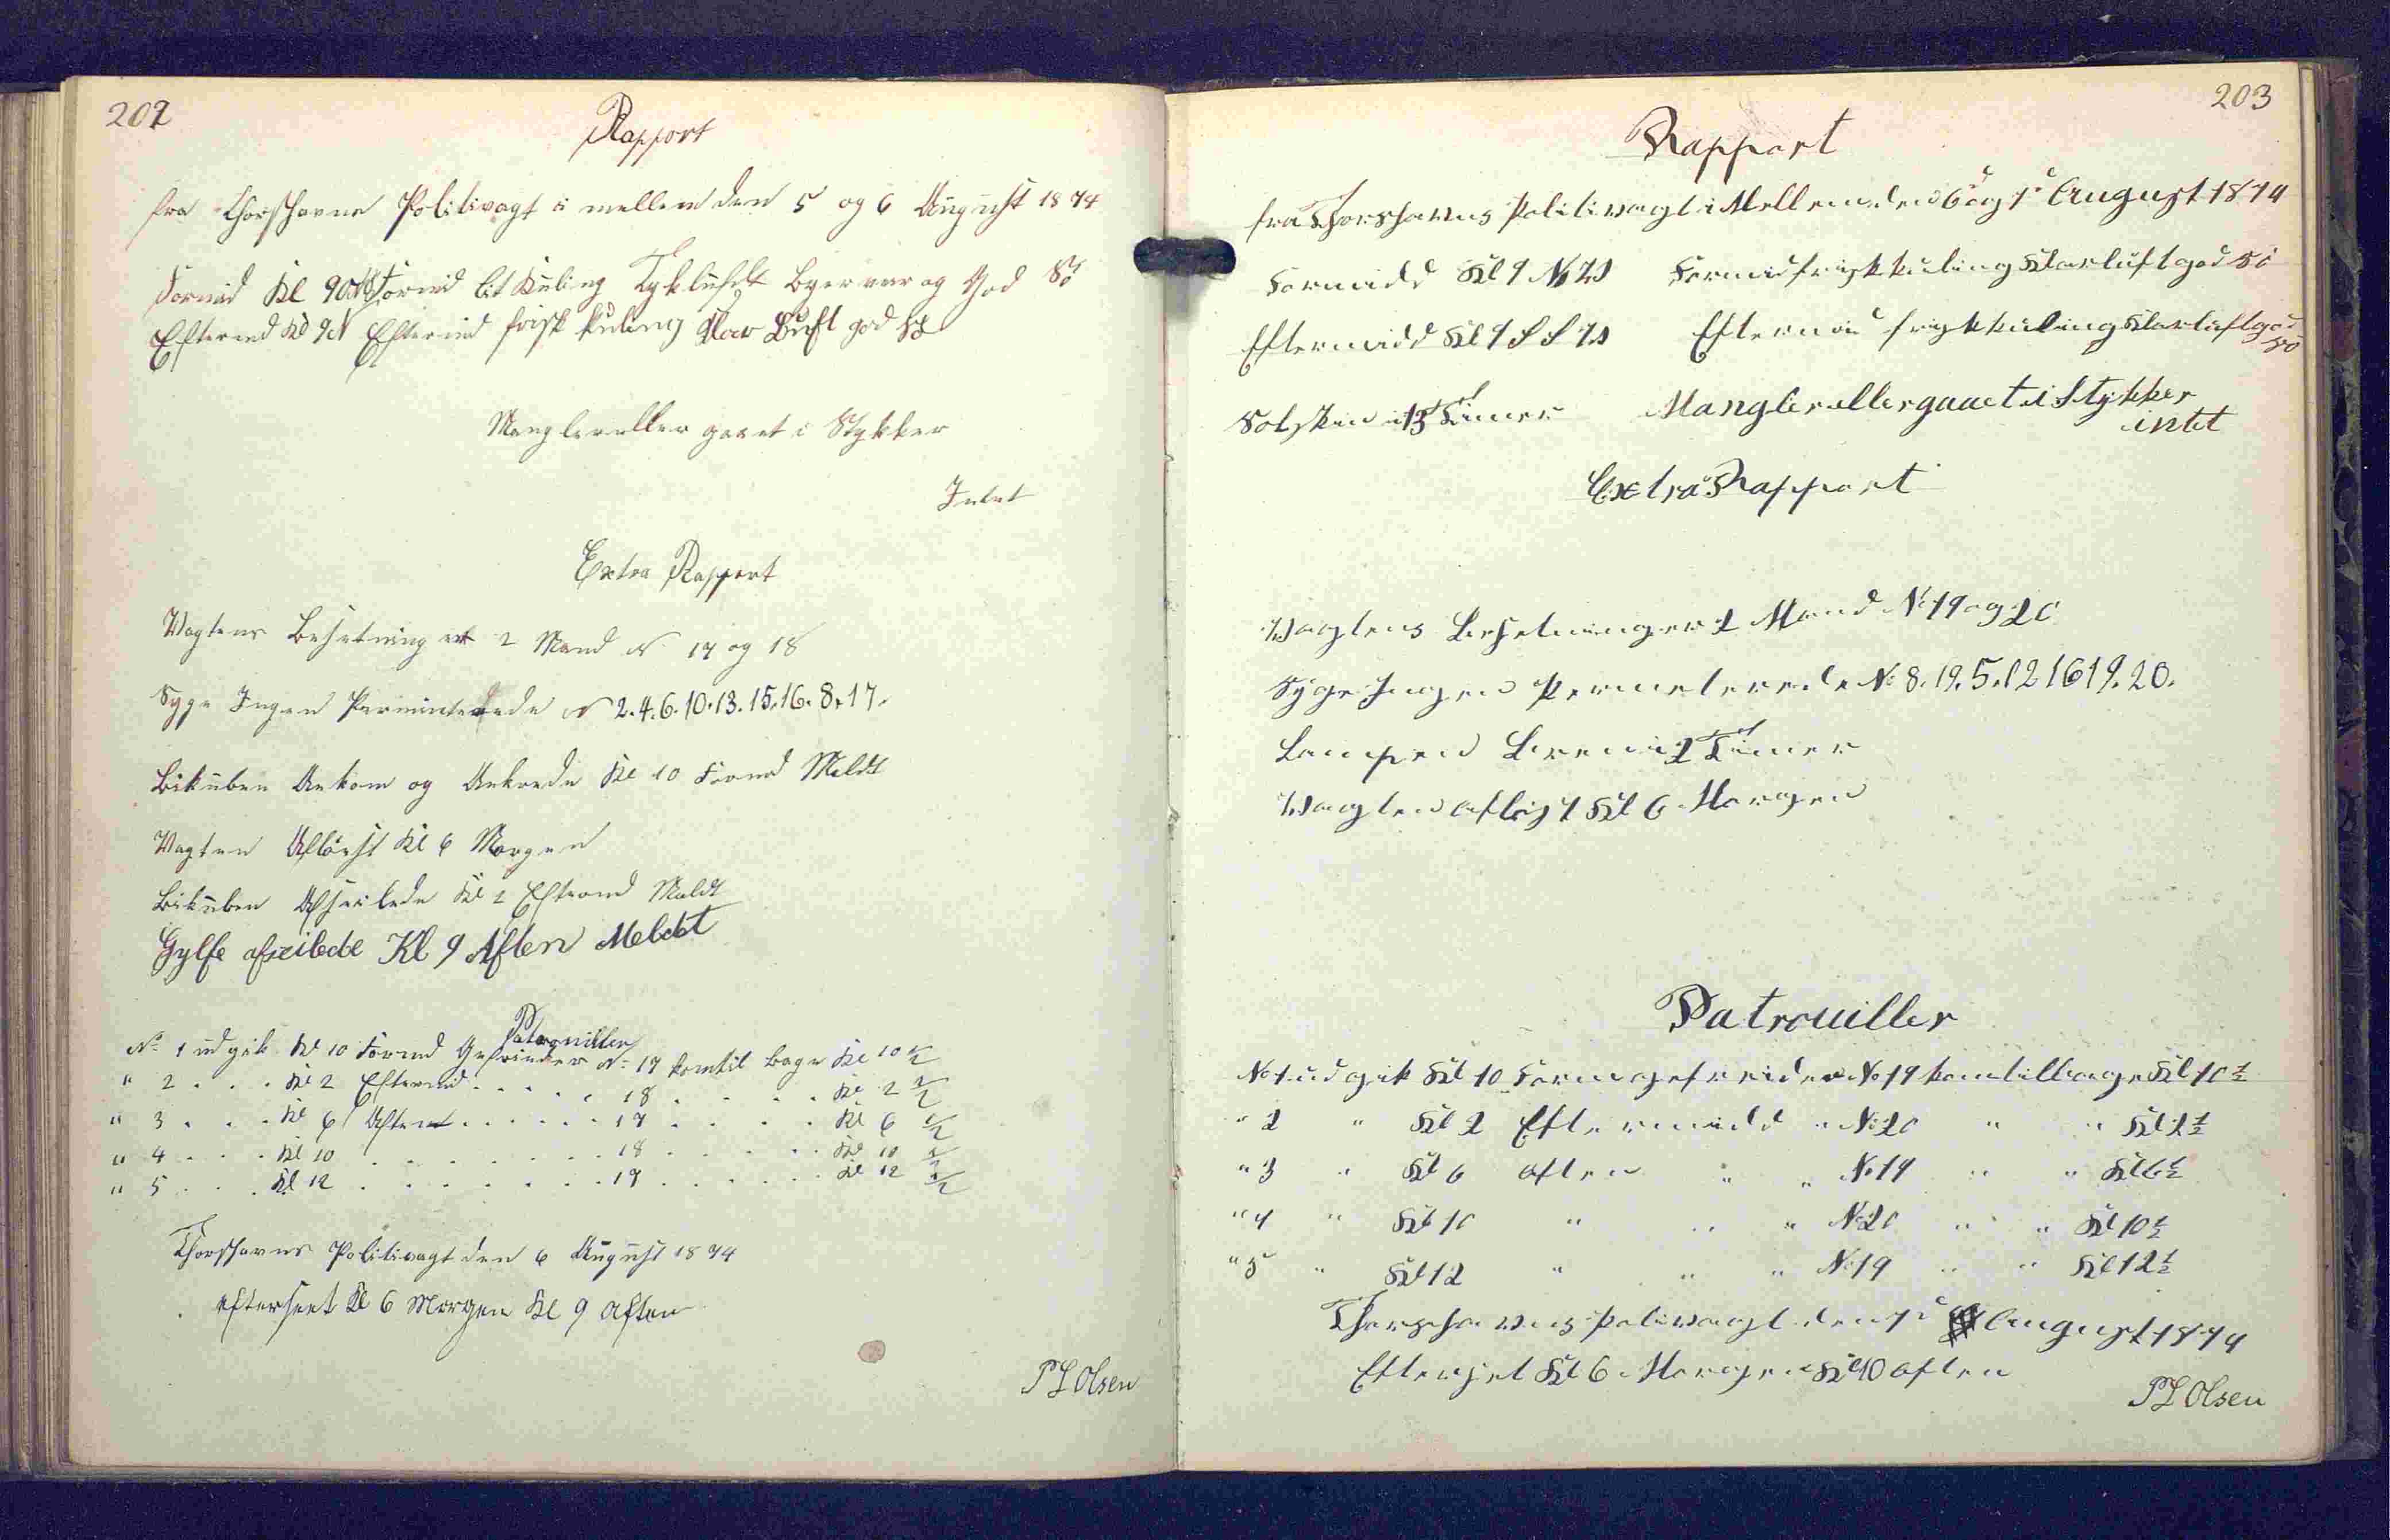 202
Rapport
fra Thorshavns Politivagt i mellem den 5 og 6 August 1874
Formid Kl 9 Formid lit Kuling Tyklufdt Byer veir og God Sö
Eftermd Kl 9 Eftermd frisk kuling Klar Luft god Sö
Mangler eller gaaet i Stykker
Intet
Extra Rapport
Vagtens Besetning er 2 Mand N 17 og 18
Syge Ingen Permiterede N 2.4.6.10.13.15.16.8.17.
Bikuben Ankom og Ankrede Kl 10 Formd Meldt
Vagten Aflöst Kl 6 Morgen
Bikuben Afseilede Kl 2 Eftermd Meldt
Gylfe afseilede Kl 9 Aften Meldt
Patrouiller
No 1 udgik Kl 10 Formd Gefreider No 17 kom til bage Kl 10 1/2
" 2 . . . Kl 2 Eftermd . . . . . 18 . . . . Kl 2 1/2
" 3 . . . Kl 6 Aften . . . . . . 17 . . . . Kl 6 1/2
" 4 . . . Kl 10 . . . . . . . 18 . . . . . Kl 10 1/2
" 5 . . . Kl 12 . . . . . . . 17 . . . . . . Kl 12 1/2
Thorshavns Politivagt den 6 August 1874
efterseet Kl 6 Morgen Kl 9 Aften
P L Olsen
203
Rapport
fra Thorshavns Politivagt i Mellem den 6 og 7 August 1874
Formidd Kl 9 Formid frisk kuling Klarluft god Sö
Eftermidd Kl 9 Eftermid frisk kuling Klarluft god
Sö
Solskin i 13 Timer Mangler eller gaaet i Stykker
intet
Extra Rapport
Vagtens Besetning er 2 Mand No 19 og 20
Syge Ingen Permeterede No 8.19.5.12 16 19.20.
Lampen Bren i 2 Timer
Vagten aflöst Kl 6 Morgen
Patrouiller
No 1 udgik Kl 10 Form gefreider No 19 kom tilbage Kl 10 1/2
" 2 " Kl 2 Eftermidd " No 20 " " Kl 2 1/2
" 3 " Kl 6 aften " " No 19 " " Kl 6 1/2
" 4 " Kl 10 " " " No 20 " " Kl 10 1/2
" 5 " Kl 12 " " " No 19 " " Kl 12 1/2
Thorshavns Polivagt den 7 August 1874
Efterset Kl 6 Morgen Kl 10 aften
P L Olsen